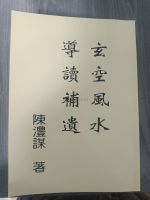 玄空風水
導讀補遺
陳澧謀 著